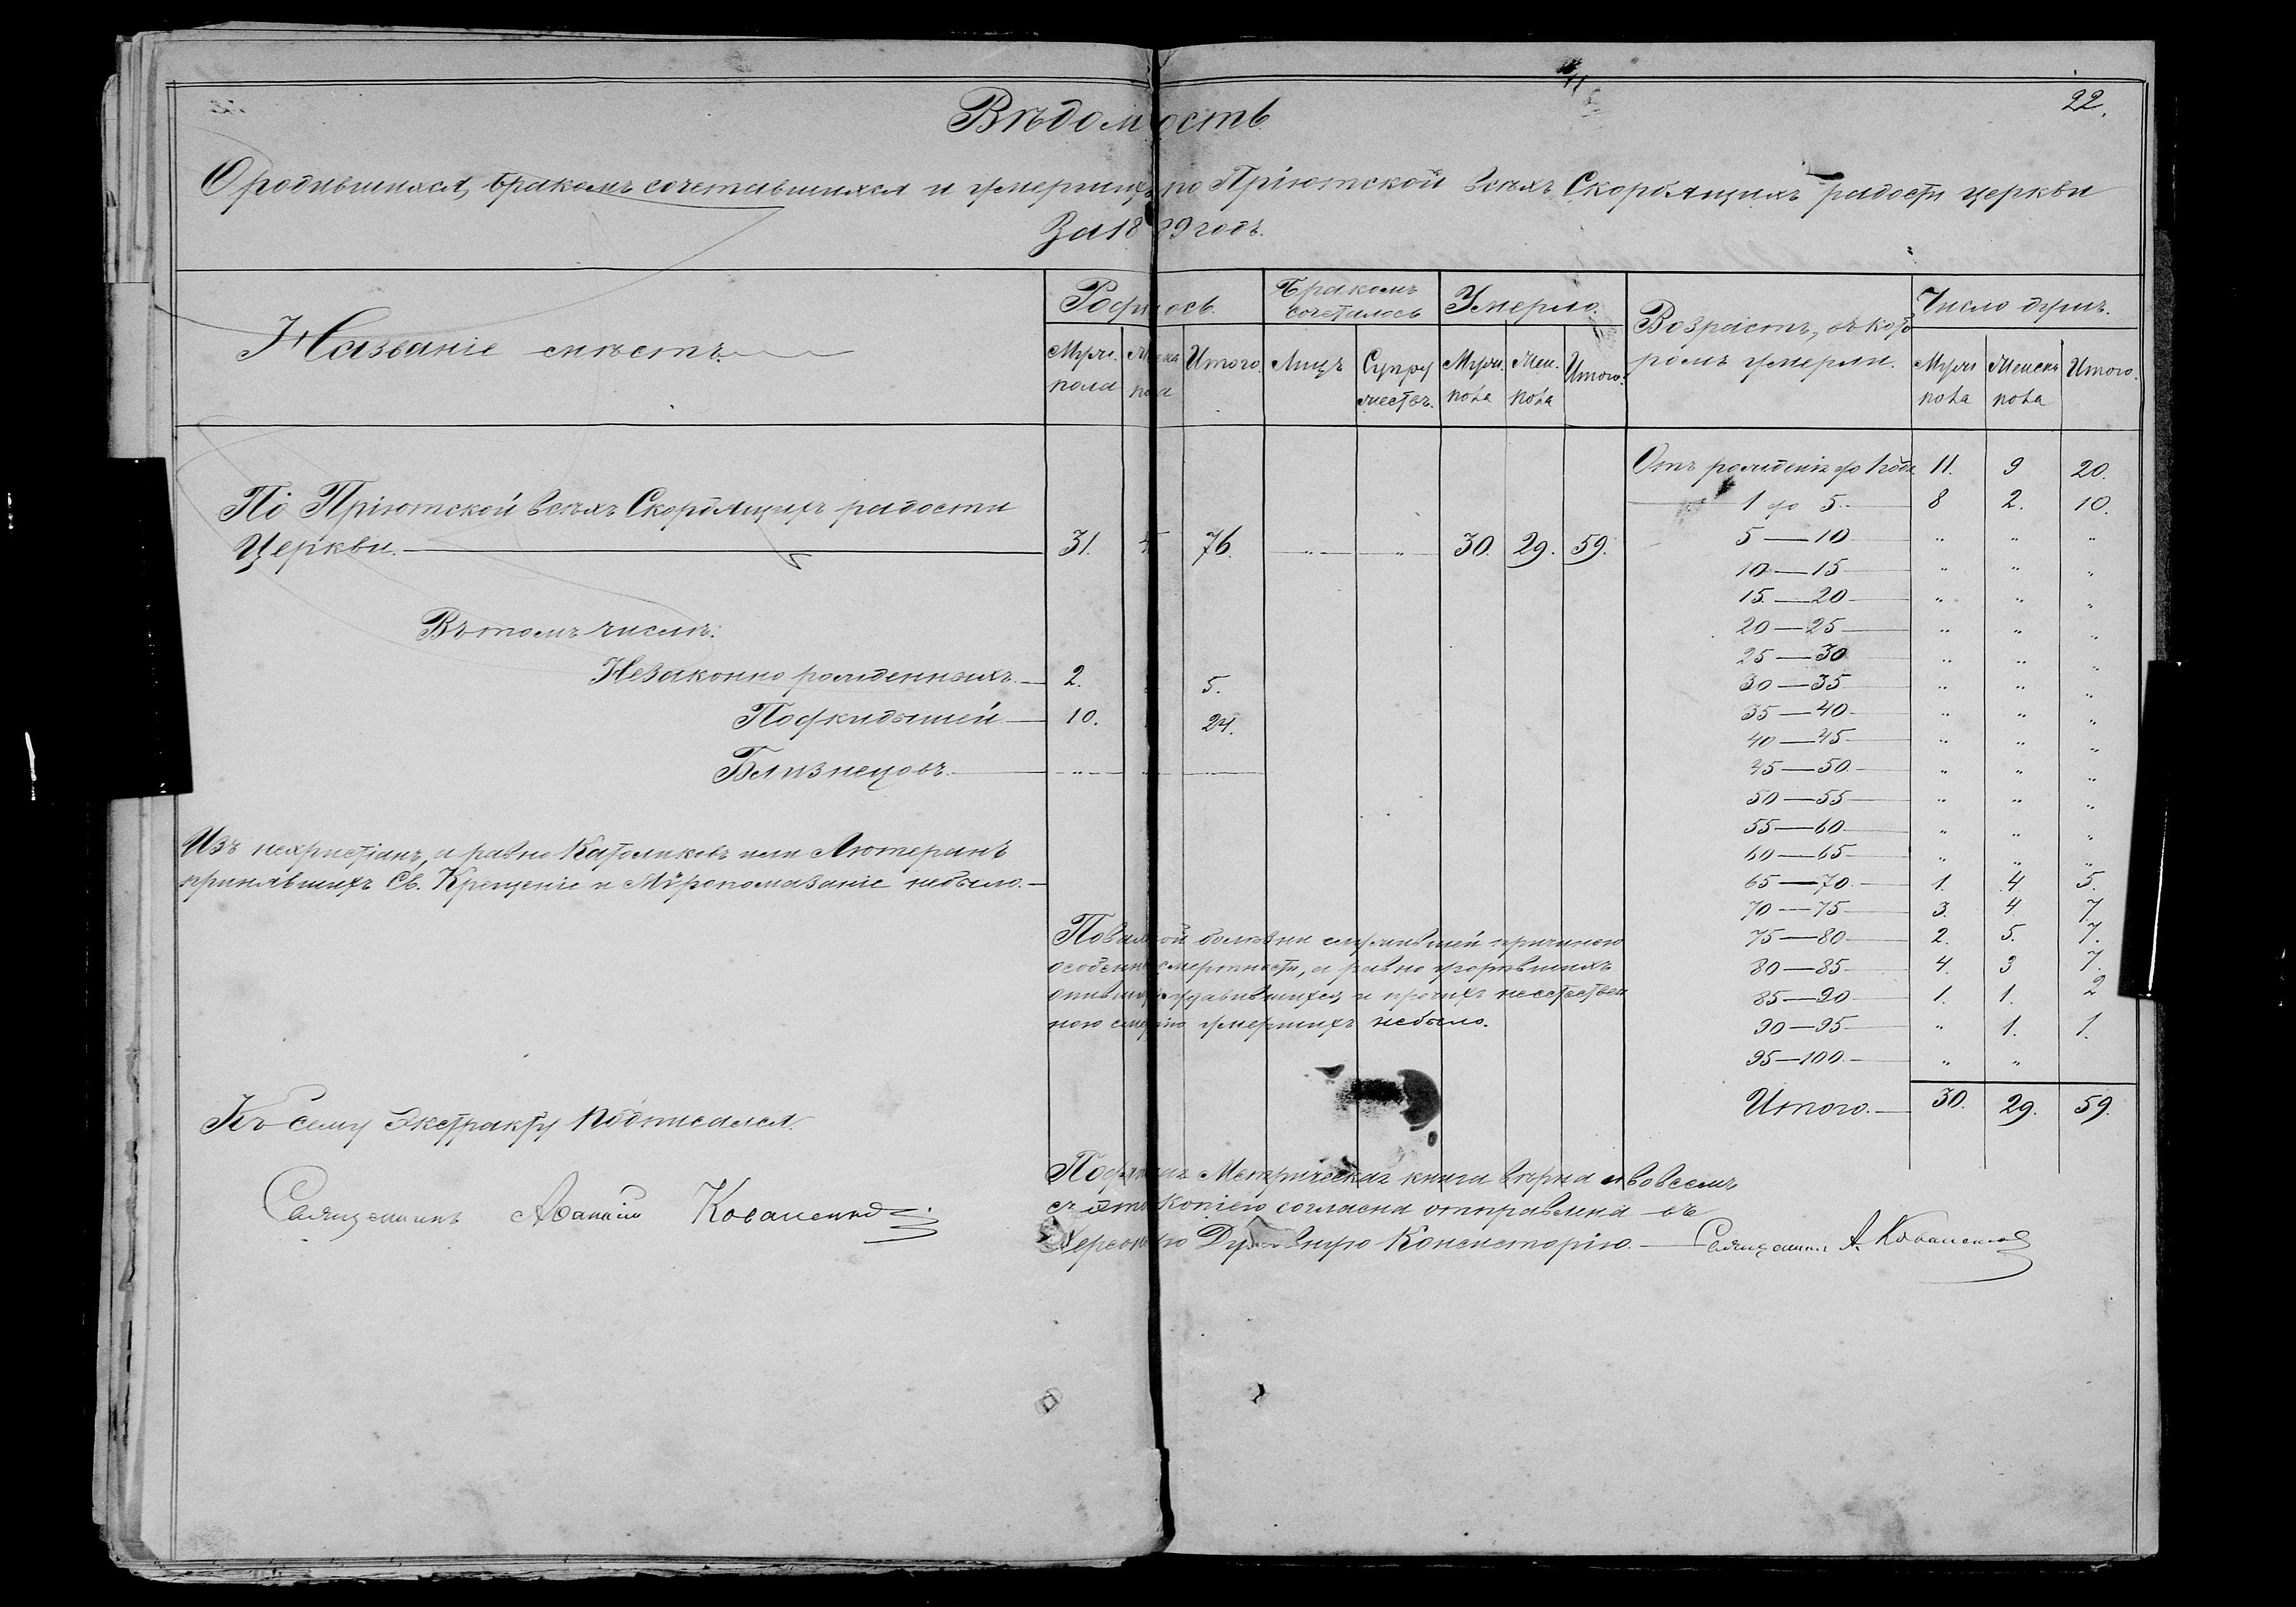 22.
Вѣдомость
О родившихся, бракомъ сочетавшихся и умершихъ по Пріютской всѣхъ Скорбящихъ радости церкви
За 1889 годъ.
Названіе мѣстъ
Родилось.
Бракомъ сочеталось
Умерло.
Возрастъ, въ кото
ромъ умерли.
Число душъ.
Муж. пола
Женска пола
Итого.
Лицъ
Супру жествъ.
Муж. пола
Жен. пола
Итого.
Муж пола
Женска пола
Итого.
По Пріютской всѣхъ Скорбящихъ радости
Церкви. 31. 4 76. " " 30. 29. 59.
Въ томъ числѣ:
Незаконно рожденныхъ. 2. 5.
Подкидышей 10. 24.
Близнецовъ "
Изъ нехристіанъ, а равно Католиковъ или Лютеранъ
принявшихъ Св. Крещеніе и Мѵропомазаніе небыло.
Къ сему Экстракту подписался.
Священникъ Аѳанасій Коваленко
Отъ рожденія до 1 года 11. 9 20.
1 до 5. 8 2. 10.
5 — 10 " " "
10 — 15 " " "
15. — 20 " " "
20 — 25 " " "
25 — 30 " " "
30 — 35 " " "
35 — 40 " " "
40 — 45 " " "
45 — 50. " " "
50 — 55 " " "
55 — 60 " " "
60 — 65 " " "
65 — 70. 1. 4. 5.
70 — 75 3. 4. 7.
75 — 80 2. 5. 7.
80 — 85 4. 3 7.
85 — 90 1. 1. 2
90 — 95 " 1. 1.
95 — 100. " "
Итого. 30. 29. 59.
Повальной болѣзни служившей причиною
особенно смертности, а равно
удавившихся и прочихъ неестествен
ною смертію умершихъ небыло.
Подлинная Метрическая книга вѣрна и во всемъ
съ этою Копіею согласна отправлена въ
Херсонскую Духовную Консисторію. — Священникъ А. Коваленко